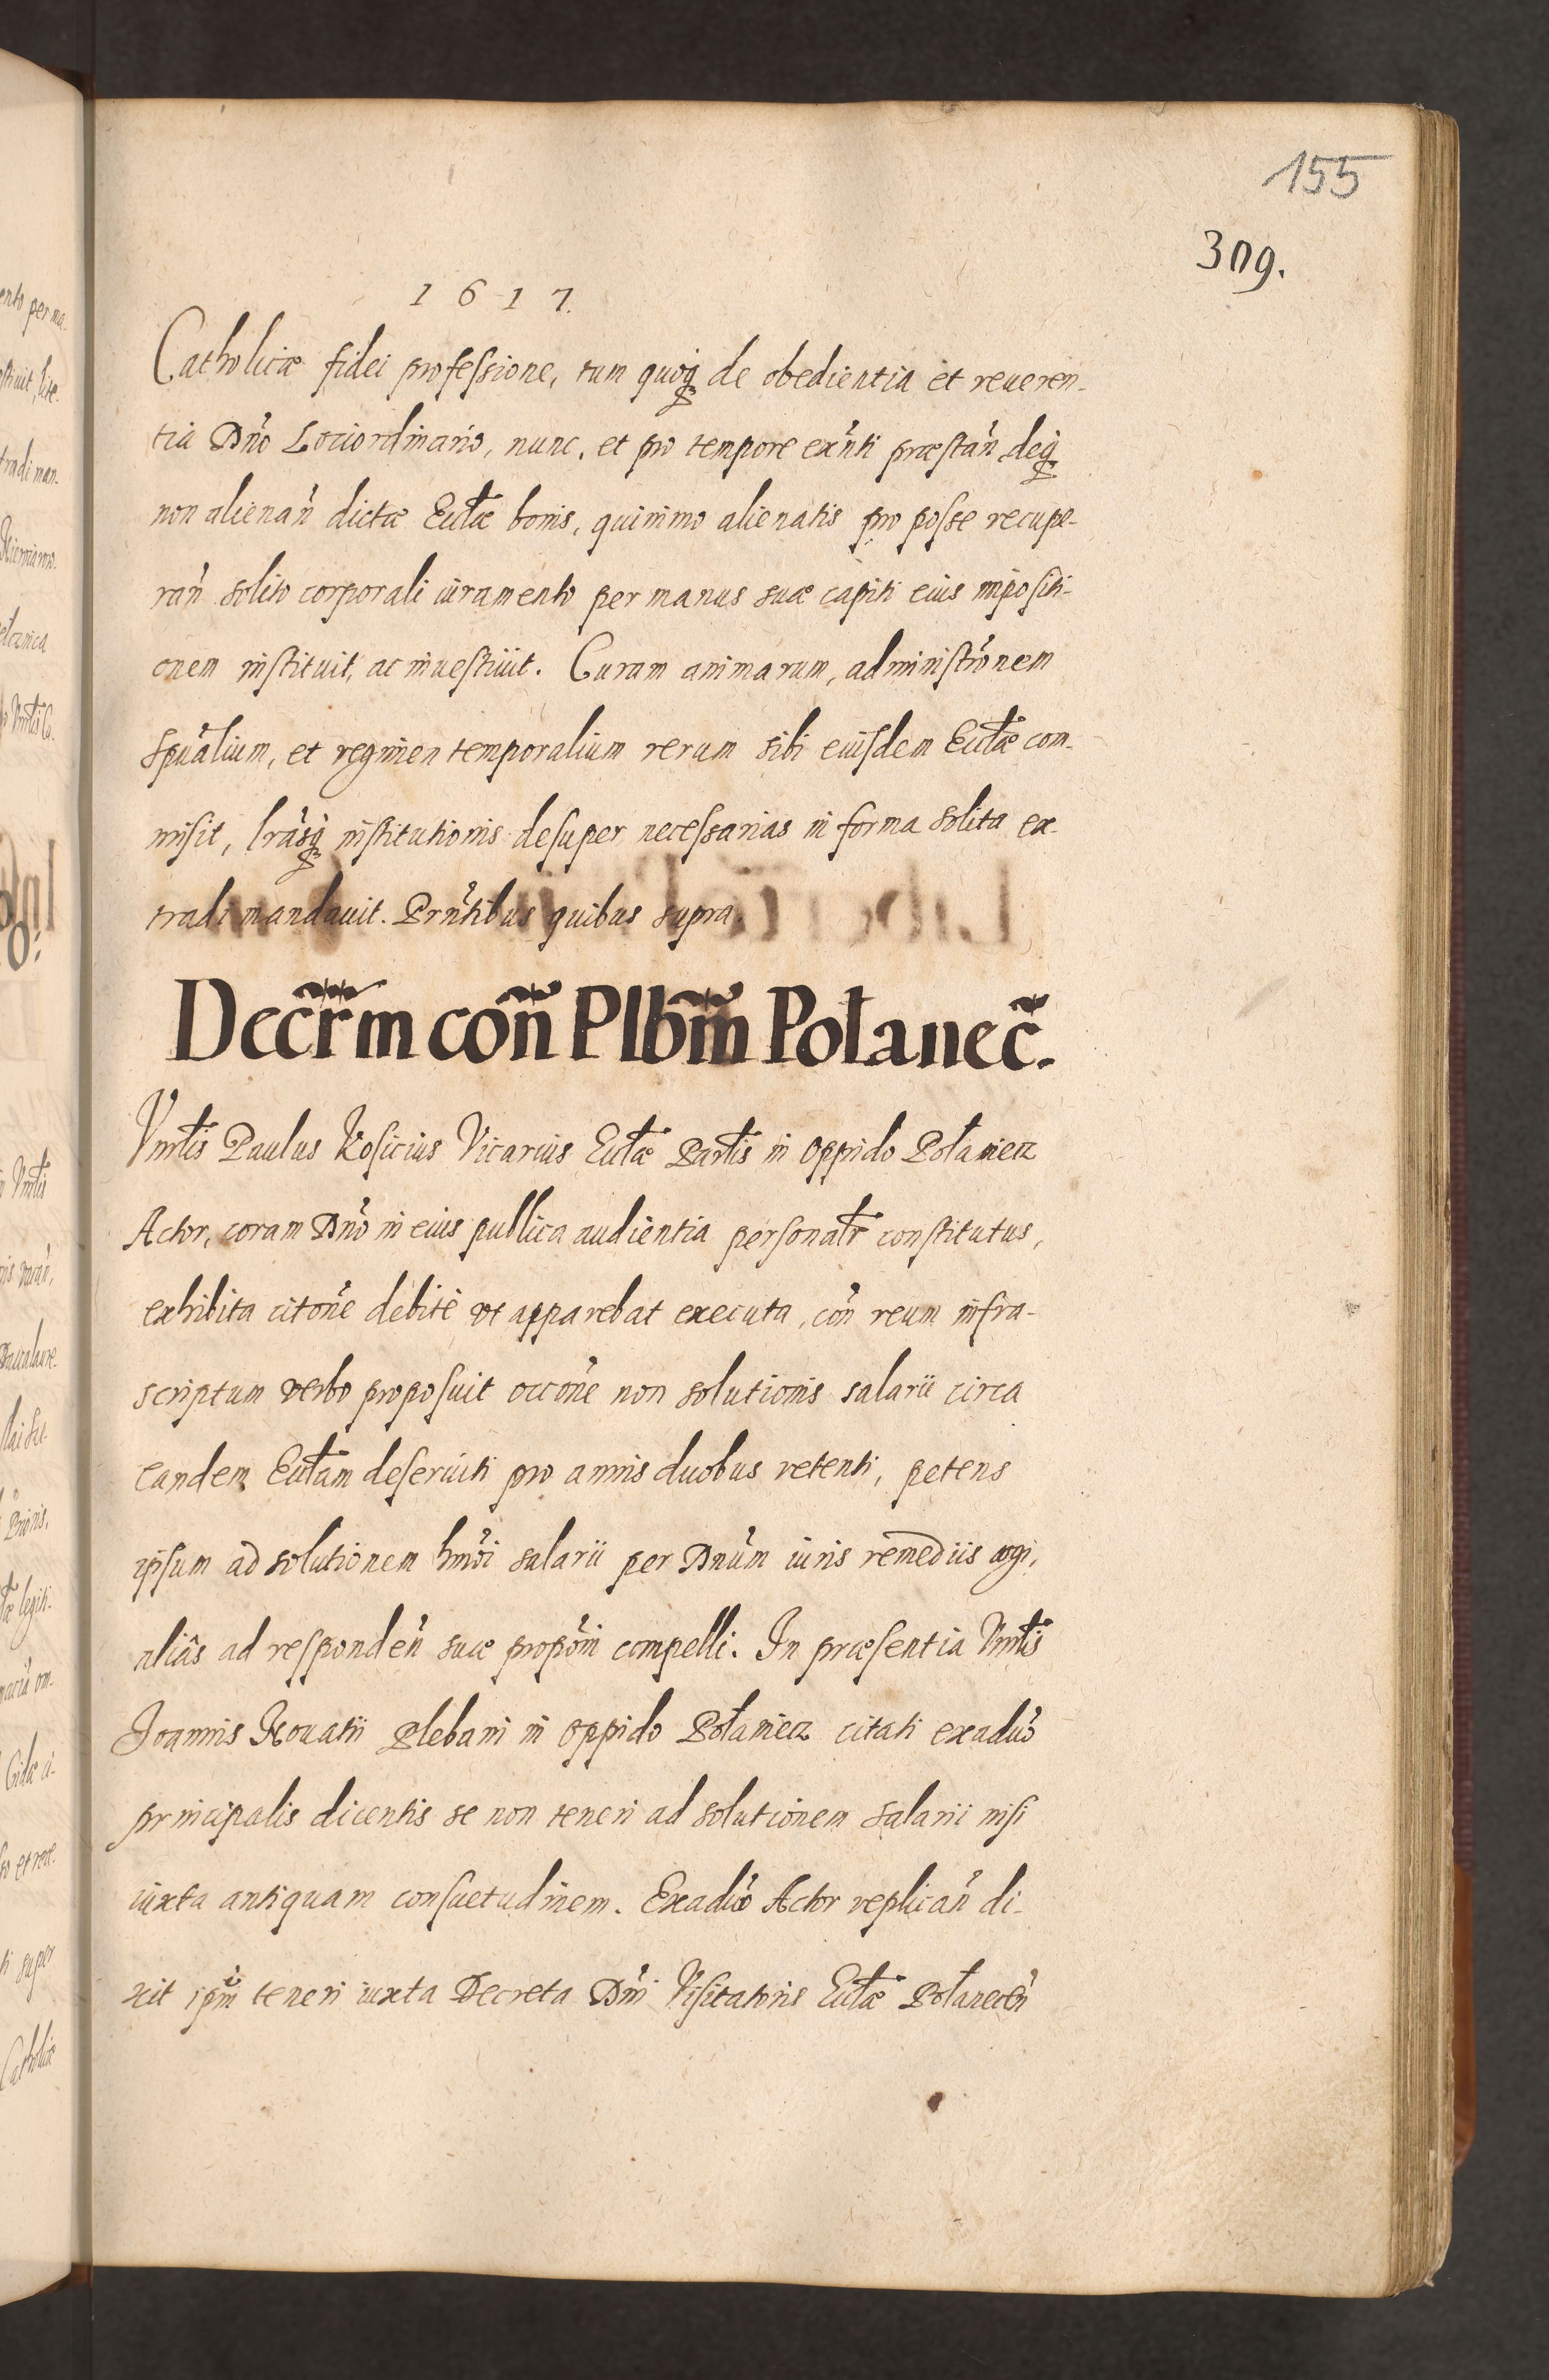 155
309.
1617.
Catholicæ fidei professione, tum quoq́ꝫ de obedientia et reueren-
tia Dño Lociordinario, nunc, et pro tempore exñti præstañ, deq́ꝫ
non alienañ dictæ Eccłæ bonis, quinimo alienatis pro posse recupe-
rañ solito corporali iuramento per manus suæ capiti eius impositi-
onem instituit, ac inuestiuit. Curam animarum, administr̃onem
Spũalium, et regimen temporalium rerum sibi eiusdem Eccłæ com-
misit, l̃rasq́ꝫ institutionis desuper necessarias in forma solita ex-
tradi mandauit. Prñtibus quibus supra.
Decr̃m coñ Plbm̃ Połanec̃.
Vnrłis Paulus Kosicius Vicarius Eccłæ Parłis in oppido Połaniecz
Actor, coram Dño in eius publica audientia personałr constitutus,
exhibita citoñe debitè vt apparebat executa, coñ reum infra-
scriptum verbo proposuit occoñe non solutionis salarii circa
eandem Eccłam deseruiti pro annis duobus retenti, petens
ipsum ad solutionem hmõi salarii per Dnũm iuris remediis cogi,
aliâs ad respondeñ suæ propoñi compelli. In præsentia Vnrłis
Joannis Nouatii Plebani in oppido Połaniecz citati exadũo
principalis dicentis se non teneri ad solutionem salarii nisi
iuxta antiquam consuetudinem. Exadũo Actor replicañ di-
xit ipm̃ teneri iuxta Decreta Dñi Visitatoris Eccłæ Połaneceñ